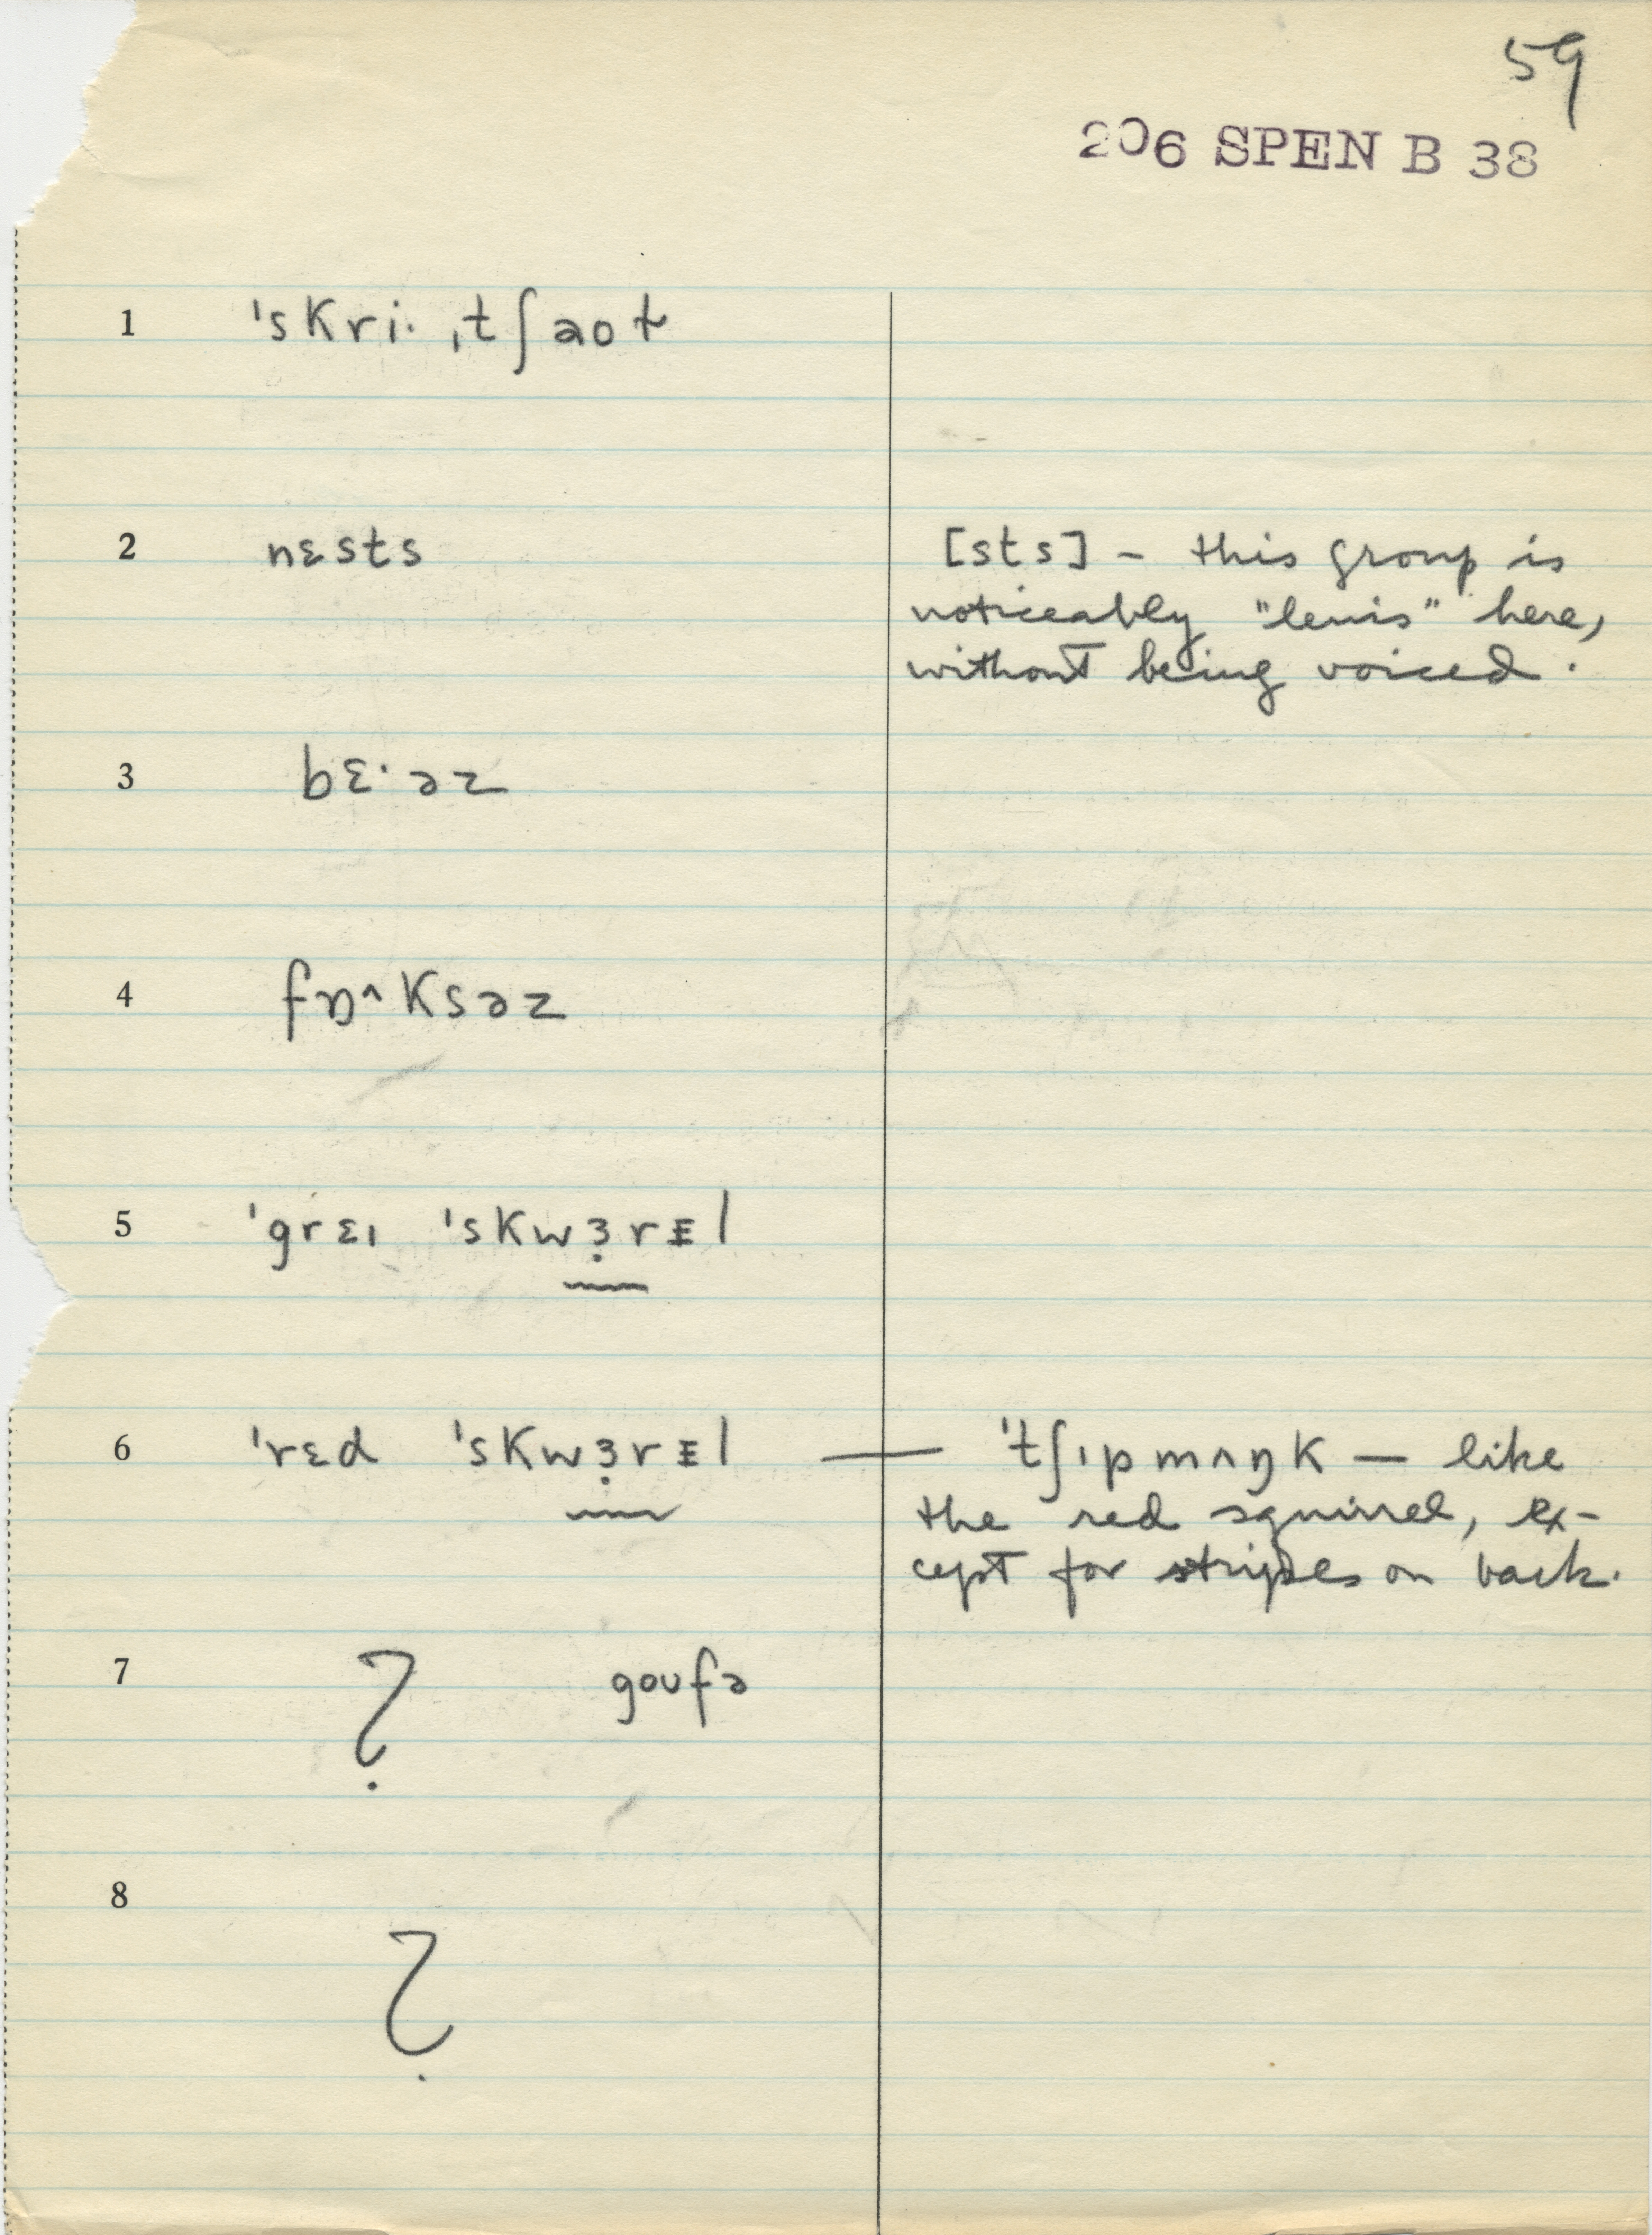 59
206 SPEN B 38
1 ˈskri· ˌtʃaoɫ
2 nɛsts [sts] – this group is
noticeably "lenis" here,
without being voiced.
3 bɛ·əz
4 fɒ^ksəz
5 ˈgrɛɪ ˈskwɜ̣rᵻl
6 ˈrɛd ˈskwɜ̣rᵻl — ˈtʃɪpmʌŋk — like
the red squirrel, ex-
cept for stripes on back.
7 ? goʊfə
8 ?